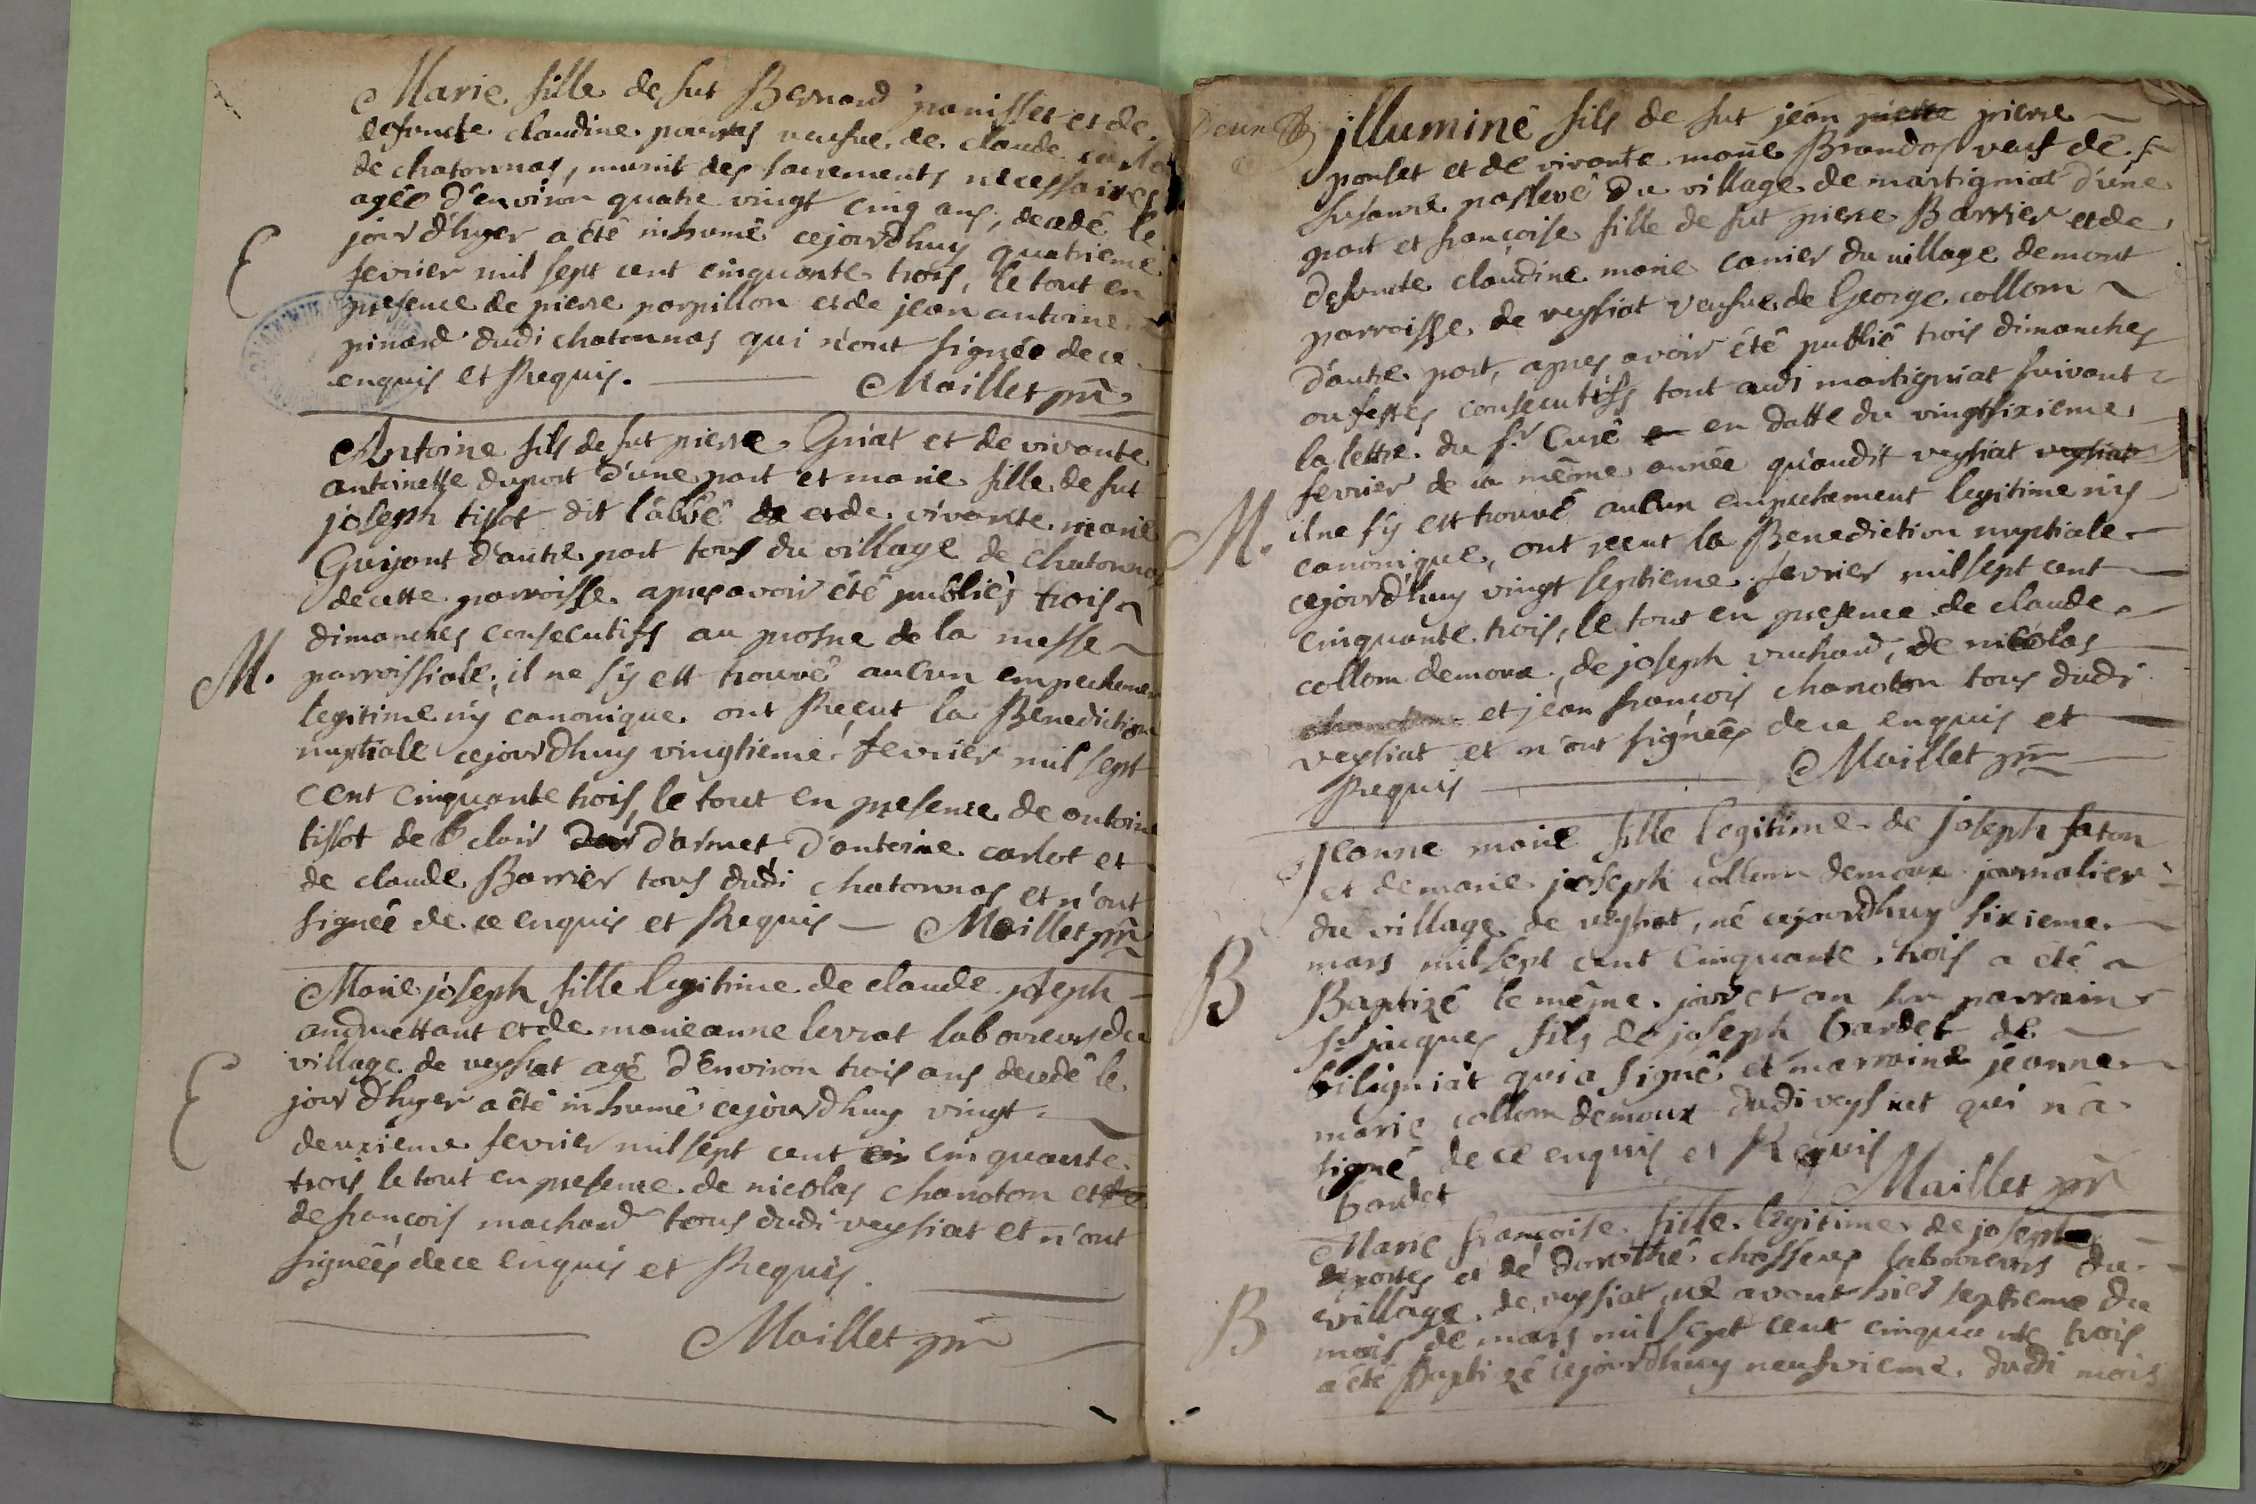 Marie fille de fut Bernard panisset et de
defuncte claudine pourras veufve de claude
de chatonnas, munit des sacrements necessaires
agée d'environ quatre vingt cinq ans, decedé le
jour d'hyer a été inhumé cejourd'huy quatrieme
E
fevrier mil sept cent cinquante trois, le tout en
presence de pierre parpillon et de jean antoine
pinard dudi chatonnas qui n'ont signée de ce
enquis et Requis. Maillet ptr
Antoine fils de fut pierre Griat et de vivante
antoinette duport d'une part et marie fille de fut
joseph tissot dit l'abbé et de vivante marie
Guijont d'autre part tous du village de chatonnas
de cette parroisse apres avoir été publiés trois
dimanches consecutifs au prosne de la messe
M.
parroissiale, il ne s'y est trouvé aucun empechement
legitime n'y canonique ont Reçut la Benediction
nuptiale cejourd'huy vingtieme fevrier mil sept
cent cinquante trois, le tout en presence de antoine
tissot de St clair d'armet d'antoine carlot et
de claude Barrier tous dudi chatonnas et n'ont
signée de ce enquis et Requis Maillet ptr
Marie joseph fille legitime de claude joseph
andruettant et de marieanne levrat laboureurs du
village de veysiat agé d'environ trois ans decedé le
E
jour d'hyer a été inhumé cejourd'huy vingt
deuxieme fevrier mil sept cent cin cinquante
trois le tout en presence de nicolas chanoton et de
de françois machard tous dudi veysiat et n'ont
signéés de ce enquis et Requis.
Maillet ptr
jlluminé fils de fut jean pierre pierre
ponset et de vivante marie Brandos veuf de
susanne poslevé du village de martigniat d'une
part et françoise fille de fut pierre Barrier et de
defuncte claudine marie carrier du village de mont
parroisse de veysiat veufve de George collom
d'autre part, apres avoir été publié trois dimanches
ou festes consecutifs tout audi martigniat suivant
la lettre du sr Curé en datte du vingtsixieme
fevrier de la même année qu'audit veysiat veysiat
M.
il ne s'y est trouvé aucun empechement legitime n'y
canonique, ont reçut la Benediction nuptiale
cejourd'huy vingt septieme fevrier mil sept cent
cinquante trois, le tout en presence de claude
collom demoux, de joseph vuchard, de nicolas
chanoton et jean françois chanoton tous dudi
veysiat et n'ont signéés de ce enquis et
Requis Maillet ptr
Jeanne marie fille legitime de joseph faton
et de marie joseph collom demoux journalier
du village de veysiat, né cejourd'huy sixieme
mars mil sept cent cinquante trois a été
B
Baptizé le même jour et an son parrain
sr jacques fils de joseph bardet de
biligniat qui a signé et marraine jeanne
marie collom demoux dudi veysiat qui n'a
signé de ce enquis et Requis
bardet Maillet ptr
Marie françoise fille legitime de joseph
deportes et de dorothé chosseus laboureurs du
village de veysiat, né avant hier septieme du
B
mois de mars mil sept cent cinquante trois
a été Baptizé cejourd'huy neufvieme dudi mois